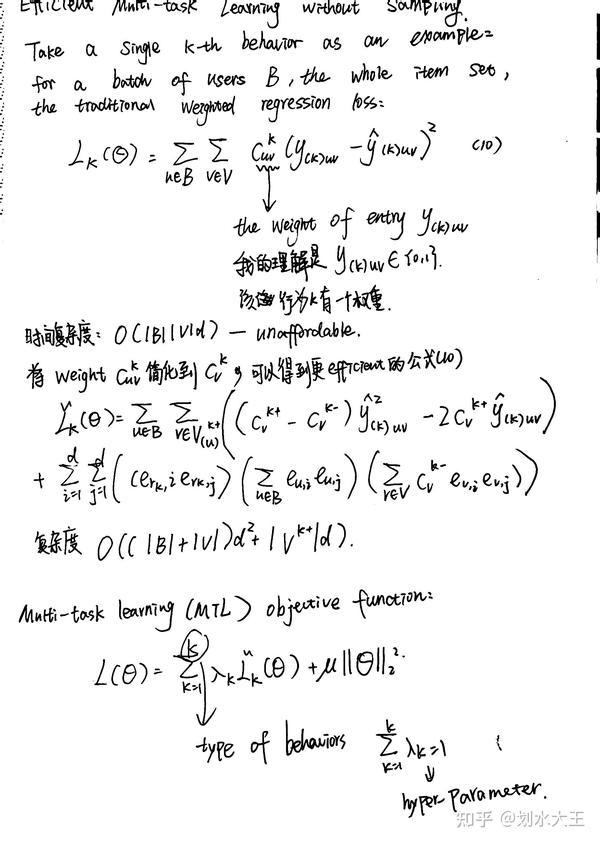 Efficient Multi-task Learning without Sampling.
Take a single k-th behavior as an example:
for a batch of users B, the whole item set,
the traditional weighted regression loss:
L_k(Θ) = Σ_{u∈B} Σ_{v∈V} C_{uv}^k (y_{(k)uv} - ŷ_{(k)uv})^2 (10)
the weight of entry y_{(k)uv}
我的理解是 y_{(k)uv} ∈ {0,1}.
行为k有一个权重.
时间复杂度: O(|B||V|d) — unaffordable.
将 weight C_{uv}^k 简化到 C_v^k, 可以得到更efficient的公式(10)
L̃_k(Θ) = Σ_{u∈B} Σ_{v∈V_{(u)}^{k+}} ((C_v^{k+} - C_v^{k-}) ŷ_{(k)uv}^2 - 2C_v^{k+} ŷ_{(k)uv})
+ Σ_{i=1}^d Σ_{j=1}^d ((e_{rk,i} e_{rk,j}) (Σ_{u∈B} e_{u,i} e_{u,j}) (Σ_{v∈V} C_v^{k-} e_{v,i} e_{v,j}))
复杂度 O((|B|+|V|)d^2+|V^{k+}|d).
Multi-task learning (MTL) objective function:
L(Θ) = Σ_{k=1}^k λ_k L̃_k(Θ) + μ||Θ||_2^2.
type of behaviors Σ_{k=1}^k λ_k = 1
hyper-parameter.
知乎 @划水大王